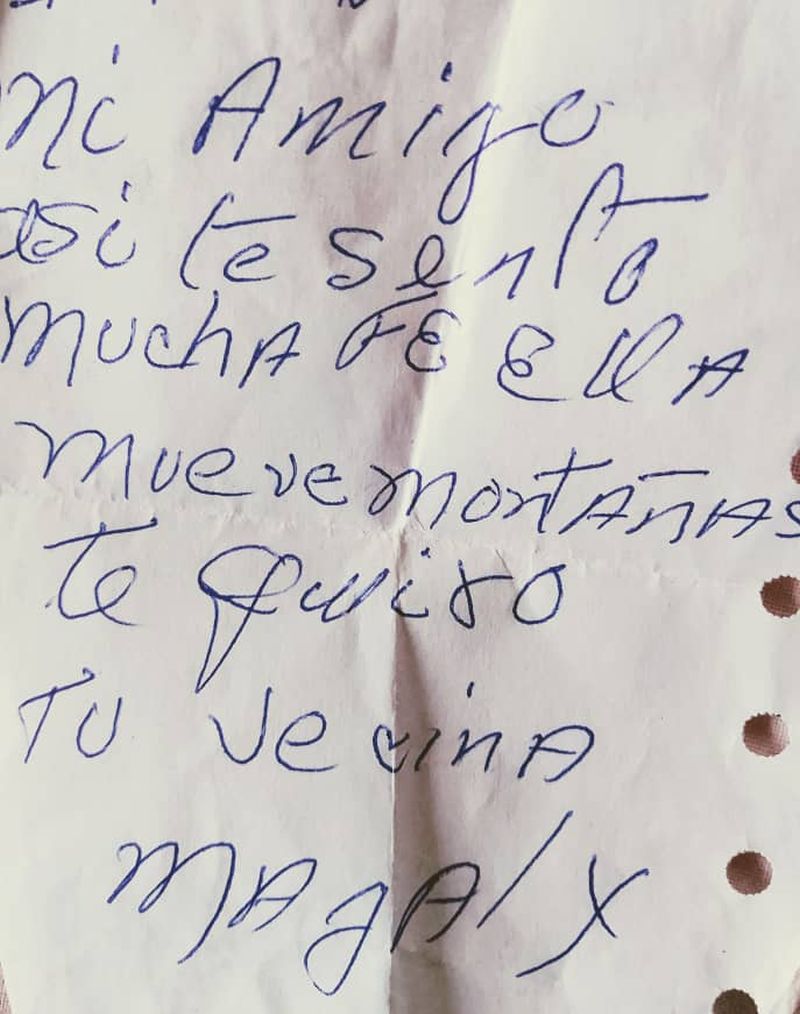 mi Amigo
asi te sento
mucha FE Ella
mueve montAñAs
te quiro
Tu vecinA
MAgAly